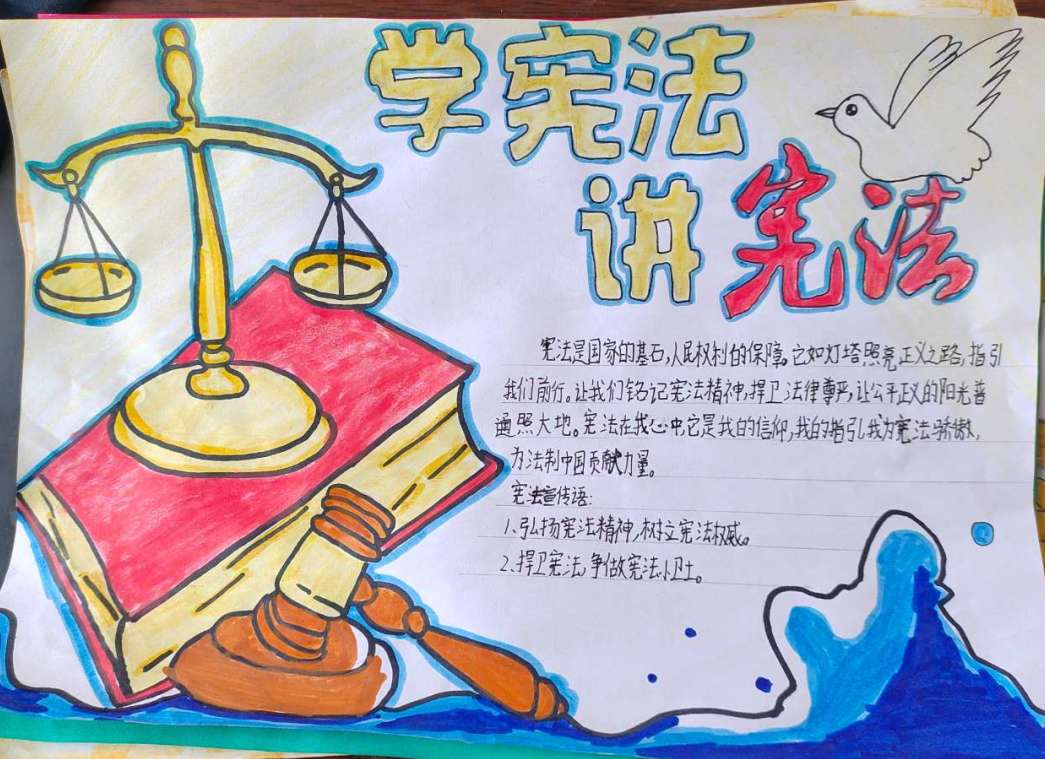 学宪法
讲宪法
宪法是国家的基石,人民权利的保障。它如灯塔照亮正义之路,指引
我们前行。让我们铭记宪法精神,捍卫法律尊严,让公平正义的阳光普
通照大地。宪法在我心中,它是我的信仰,我的指引,我为宪法骄傲,
为法制中国贡献力量。
宪法宣传语:
1、弘扬宪法精神,树立宪法权威。
2、捍卫宪法,争做宪法小卫士。